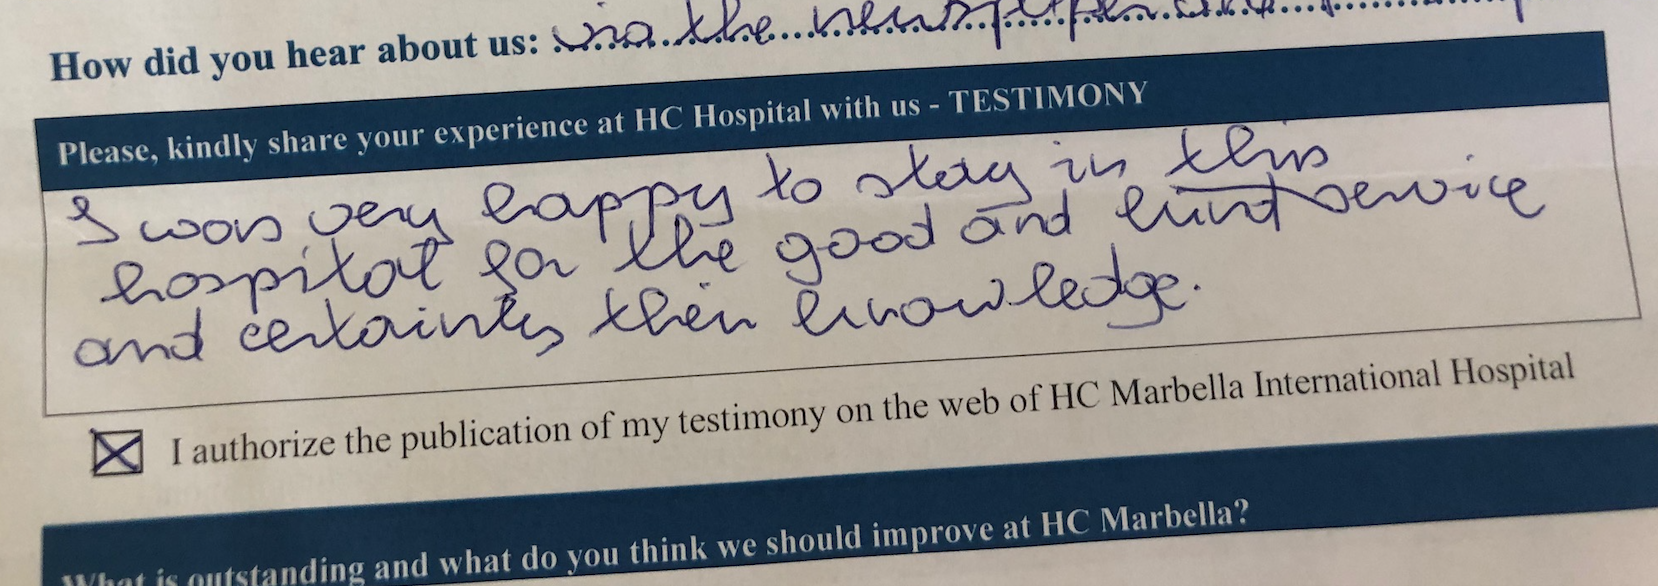 How did you hear about us: via the newspaper
Please, kindly share your experience at HC Hospital with us - TESTIMONY
I was very happy to stay in this
hospital for the good and kind service
and certainty their knowledge.
I authorize the publication of my testimony on the web of HC Marbella International Hospital
What is outstanding and what do you think we should improve at HC Marbella?